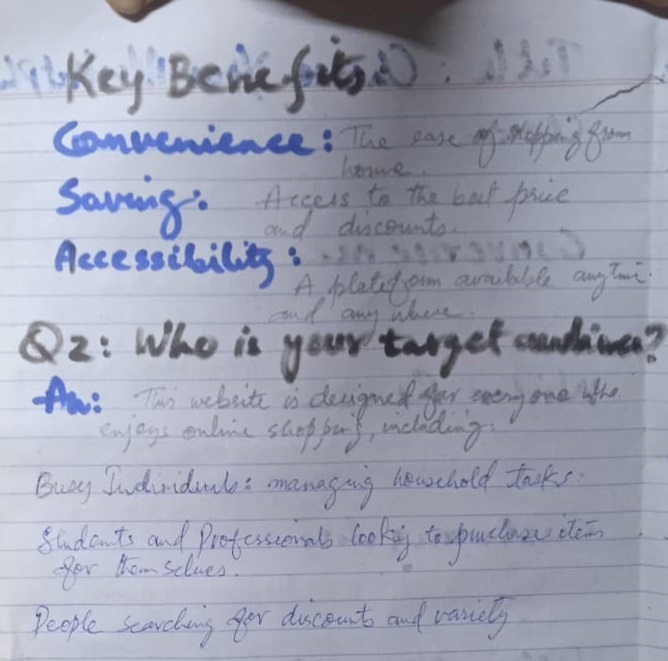 Key Benefits:
Convenience: The ease of shopping from
home.
Saving: Access to the best price
and discounts.
Accessibility:
A plateform available anytime
and any where.
Q2: Who is your target audience?
An: This website is designed for everyone who
enjoys online shopping, including:
Busy Individuals: managing household tasks.
Students and Professionals looking to purchase item
for themselves.
People searching for discounts and variety